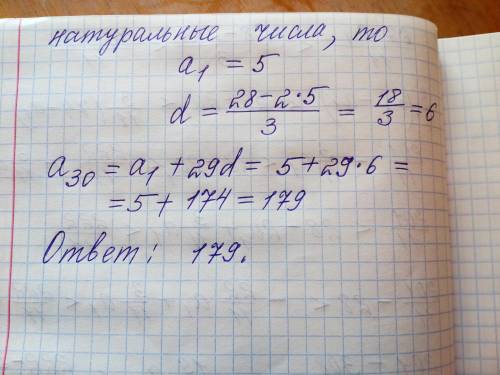 натуральные числа, то
a₁ = 5
d = (28 - 2·5)/3 = 18/3 = 6
a₃₀ = a₁ + 29d = 5 + 29·6 =
= 5 + 174 = 179
Ответ: 179.